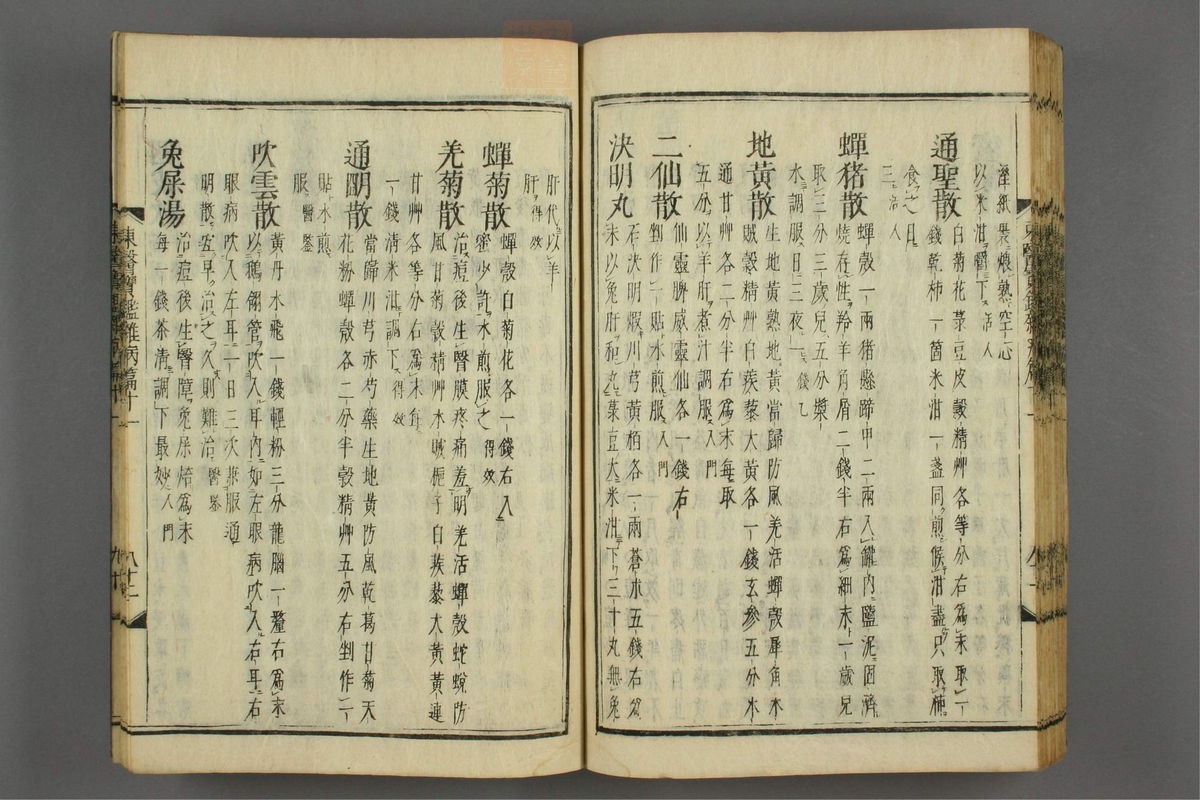 濕紙裹煨熟空心
以米泔嚼下活人
通聖散白菊花菉豆皮穀精艸各等分右爲末取一
錢乾柿一箇米泔一盞同煎候泔盡只取柿
食之日
三活人
蟬猪散蟬殼一兩猪懸蹄甲二兩入罐內鹽泥固濟
燒存性羚羊角屑二錢半右爲細末一歲兒
取三分三歲兒五分漿
水調服日三夜一錢乙
地黃散生地黃熟地黃當歸防風羌活蟬殼犀角木
賊穀精艸白蒺藜大黃各一錢玄參五分木
通甘艸各二分半右爲末每取
五分以羊肝煮汁調服入門
二仙散仙靈脾威靈仙各一錢右
剉作一貼水煎服入門
決明丸石決明煆川芎黃栢各一兩蒼朮五錢右爲
末以兔肝和丸菉豆大米泔下三十丸無兔
肝代以羊
肝得效
蟬菊散蟬殼白菊花各一錢右入
蜜少許水煎服之得效
羌菊散治痘後生瞖膜疼痛羞明羌活蟬殼蛇蛻防
風甘菊穀精艸木賊梔子白蒺藜大黃黃連
甘艸各等分右爲末每
一錢清米泔調下得效
通明散當歸川芎赤芍藥生地黃防風乾葛甘菊天
花粉蟬殼各二分半穀精艸五分右剉作一
貼水煎
服醫鑒
吹雲散黃丹水飛一錢輕粉三分龍腦一釐右爲末
以鵝翎管吹入耳內如左眼病吹入右耳右
眼病吹入左耳一日三次兼服通
明散宜早治之久則難治醫鑒
兔屎湯治痘後生瞖障兔屎焙爲末
每一錢茶清調下最妙入門
東醫寶鑑雜病篇十一